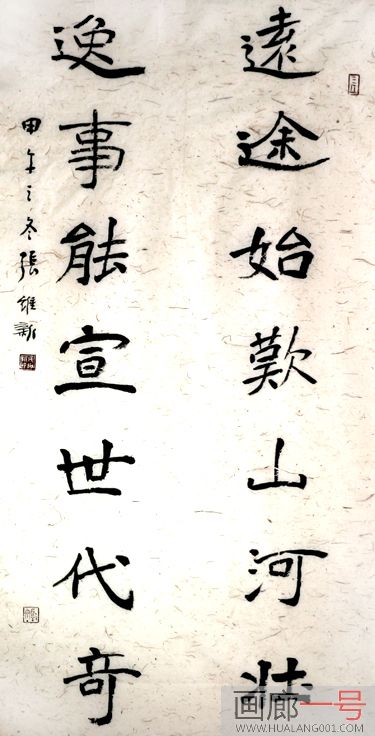 遠途始歎山河壯
逸事能宣世代奇
甲午之冬張維新
画廊一号
WWW.HUALANG001.COM